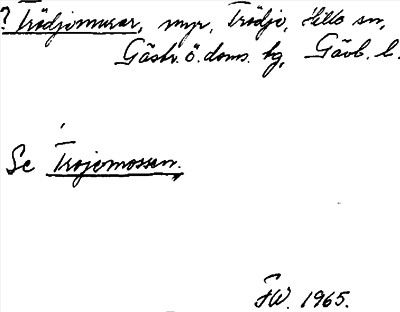 ? Trödjemurar, myr, Trödje, Hille sn,
Gästr. ö. doms. hg, Gävl. l.
Se Trojemossen.
FW. 1965.